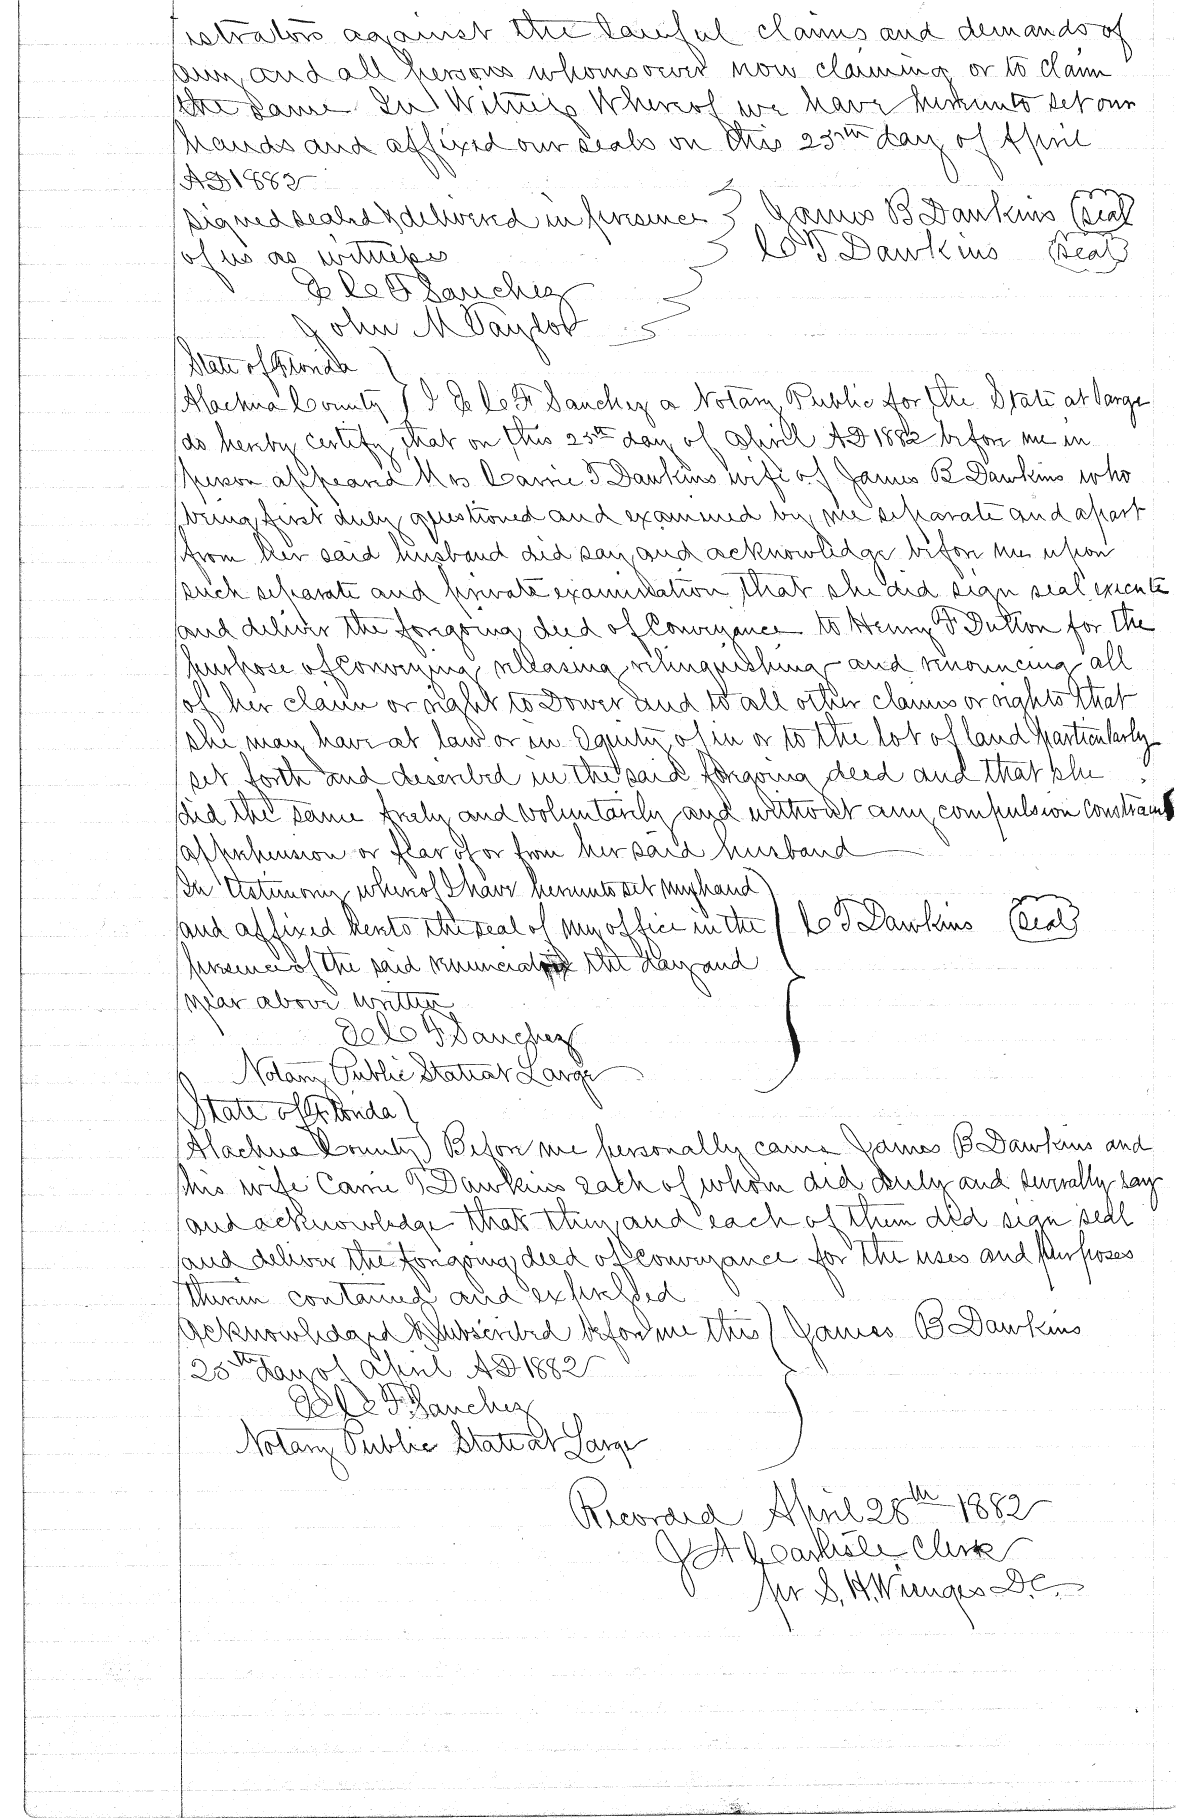 istrators against the lawful claims and demands of
any and all persons whomsoever now claiming or to claim
the same In Witness Whereof we have hereunto set our
hands and affixed our seals on this 25th day of April
AD 1882
Signed sealed & delivered in presence James B Dawkins (seal)
of us as witnesses C T Dawkins (seal)
E C F Sanchez
John M Taylor
State of Florida
Alachua County } I E C F Sanchez a Notary Public for the State at large
do hereby certify that on this 25th day of April AD 1882 before me in
person appeared Mrs Carrie T Dawkins wife of James B Dawkins who
being first duly questioned and examined by me separate and apart
from her said husband did say and acknowledge before me upon
such separate and private examination that she did sign seal execute
and deliver the foregoing deed of Conveyance to Henry F Dutton for the
purpose of Conveying releasing relinquishing and renouncing all
of her claim or right to Dower and to all other claims or rights that
she may have at law or in Equity of in or to the lot of land particularly
set forth and described in the said foregoing deed and that she
did the same freely and voluntarily and without any compulsion constraint
apprehension or fear of or from her said husband
In testimony whereof I have hereunto set my hand
and affixed hereto the seal of my office in the } C T Dawkins (seal)
presence of the said renunciatrix the day and
year above written
E C F Sanchez
Notary Public State at Large
State of Florida }
Alachua County ) Before me personally came James B Dawkins and
his wife Carrie T Dawkins each of whom did duly and severally say
and acknowledge that they and each of them did sign seal
and deliver the foregoing deed of conveyance for the uses and purposes
therein contained and expressed
Acknowledged & subscribed before me this } James B Dawkins
25th day of April AD 1882
E C F Sanchez
Notary Public State at Large
Recorded April 28th 1882
J A Carlisle Clerk
per S. H. Wienges D.C.